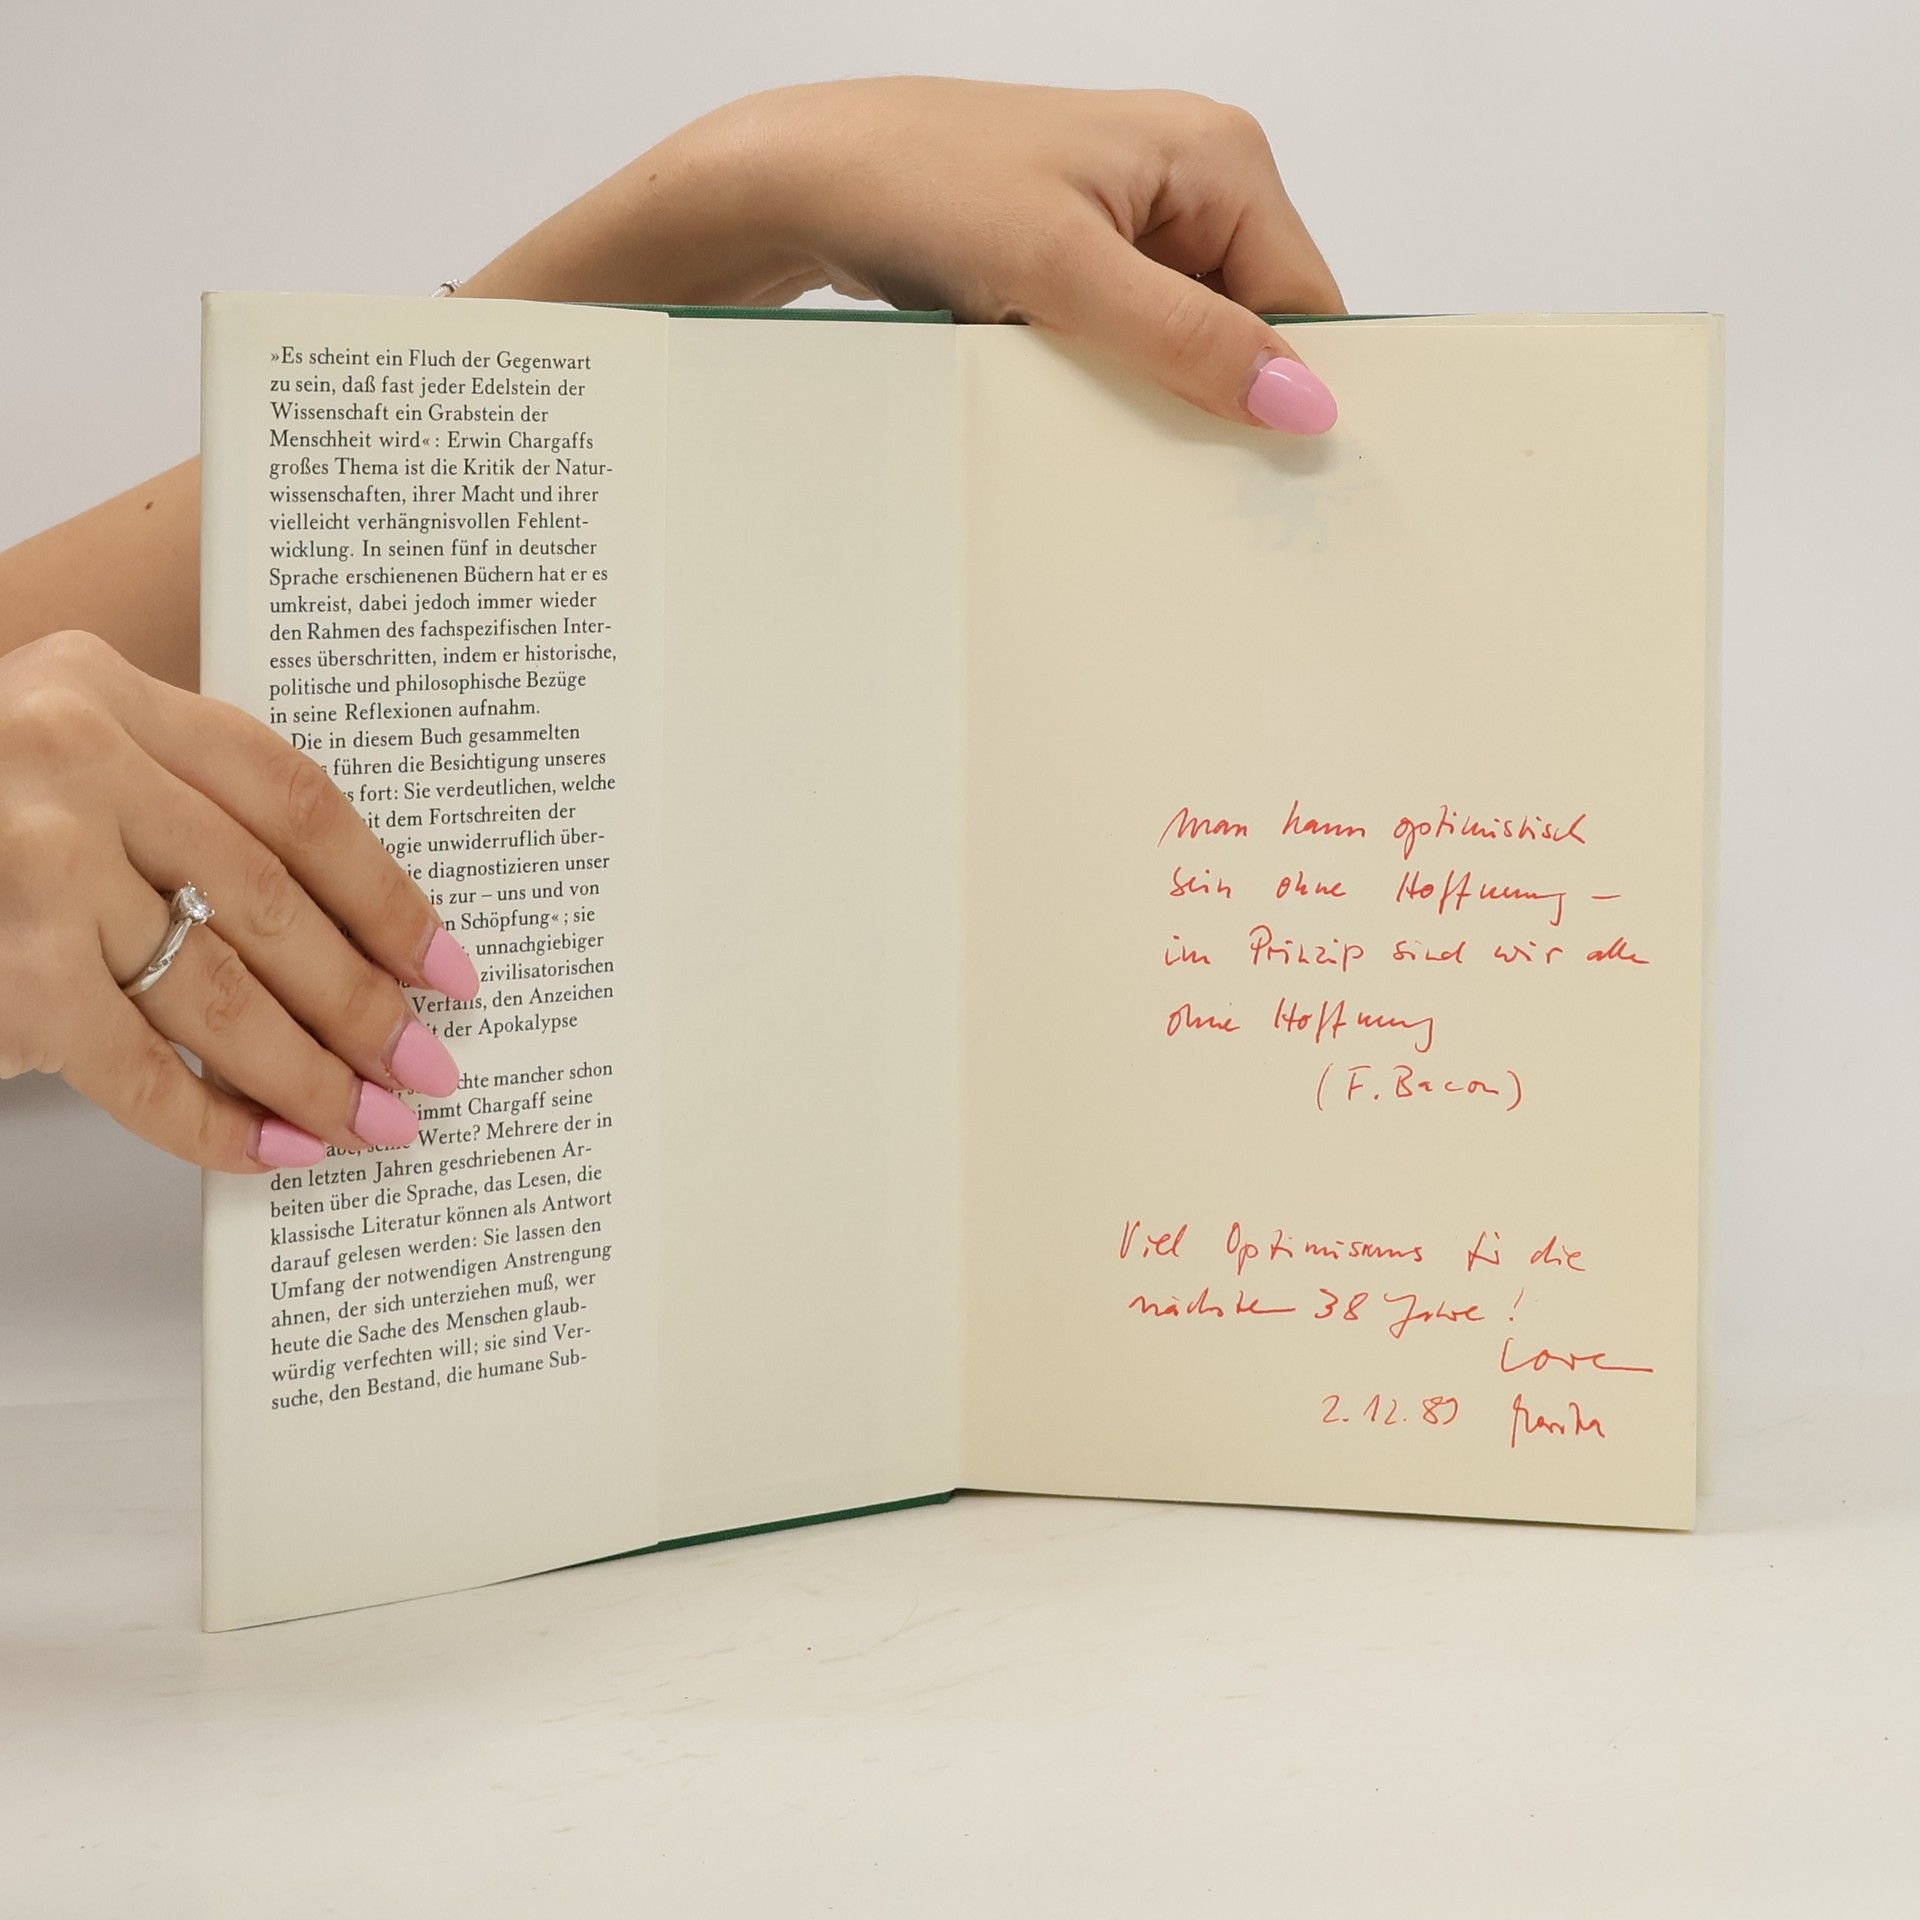 »Es scheint ein Fluch der Gegenwart
zu sein, daß fast jeder Edelstein der
Wissenschaft ein Grabstein der
Menschheit wird«: Erwin Chargaffs
großes Thema ist die Kritik der Natur-
wissenschaften, ihrer Macht und ihrer
vielleicht verhängnisvollen Fehlent-
wicklung. In seinen fünf in deutscher
Sprache erschienenen Büchern hat er es
umkreist, dabei jedoch immer wieder
den Rahmen des fachspezifischen Inter-
esses überschritten, indem er historische,
politische und philosophische Bezüge
in seine Reflexionen aufnahm.
Die in diesem Buch gesammelten
führen die Besichtigung unseres
fort: Sie verdeutlichen, welche
dem Fortschreiten der
unwiderruflich über-
diagnostizieren unser
zur – uns und von
Schöpfung«; sie
unnachgiebiger
zivilisatorischen
Verfalls, den Anzeichen
der Apokalypse
mancher schon
Chargaff seine
Werte? Mehrere der in
den letzten Jahren geschriebenen Ar-
beiten über die Sprache, das Lesen, die
klassische Literatur können als Antwort
darauf gelesen werden: Sie lassen den
Umfang der notwendigen Anstrengung
ahnen, der sich unterziehen muß, wer
heute die Sache des Menschen glaub-
würdig verfechten will; sie sind Ver-
suche, den Bestand, die humane Sub-
man kann optimistisch
sein ohne Hoffnung –
im Prinzip sind wir alle
ohne Hoffnung
(F. Bacon)
Viel Optimismus für die
nächsten 38 Jahre!
Love
2.12.89 Marita